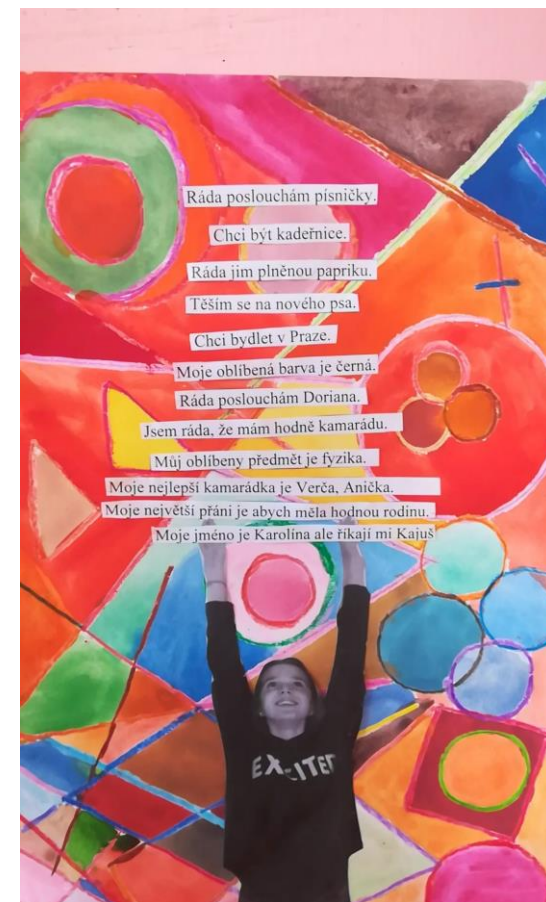 Ráda poslouchám písničky.
Chci být kadeřnice.
Ráda jim plněnou papriku.
Těším se na nového psa.
Chci bydlet v Praze.
Moje oblíbená barva je černá.
Ráda poslouchám Doriana.
Jsem ráda, že mám hodně kamarádu.
Můj oblíbeny předmět je fyzika.
Moje nejlepší kamarádka je Verča, Anička.
Moje největší přáni je abych měla hodnou rodinu.
Moje jméno je Karolína ale říkají mi Kajuš
EXCITED